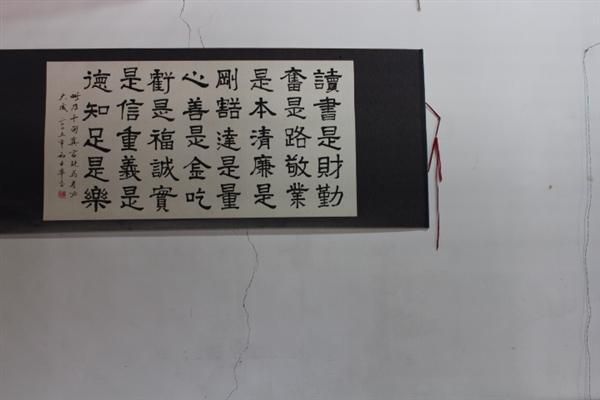 讀書是財勤
奮是路敬業
是本清廉是
剛豁達是量
心善是金吃
虧是福誠實
是信重義是
德知足是樂
此乃十句真言